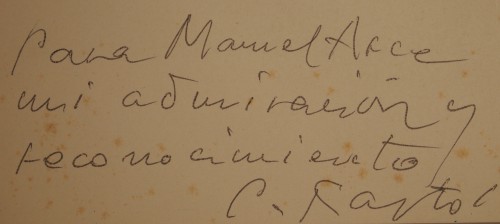 Para Manuel Arce
mi admiración y
reconocimiento
C.